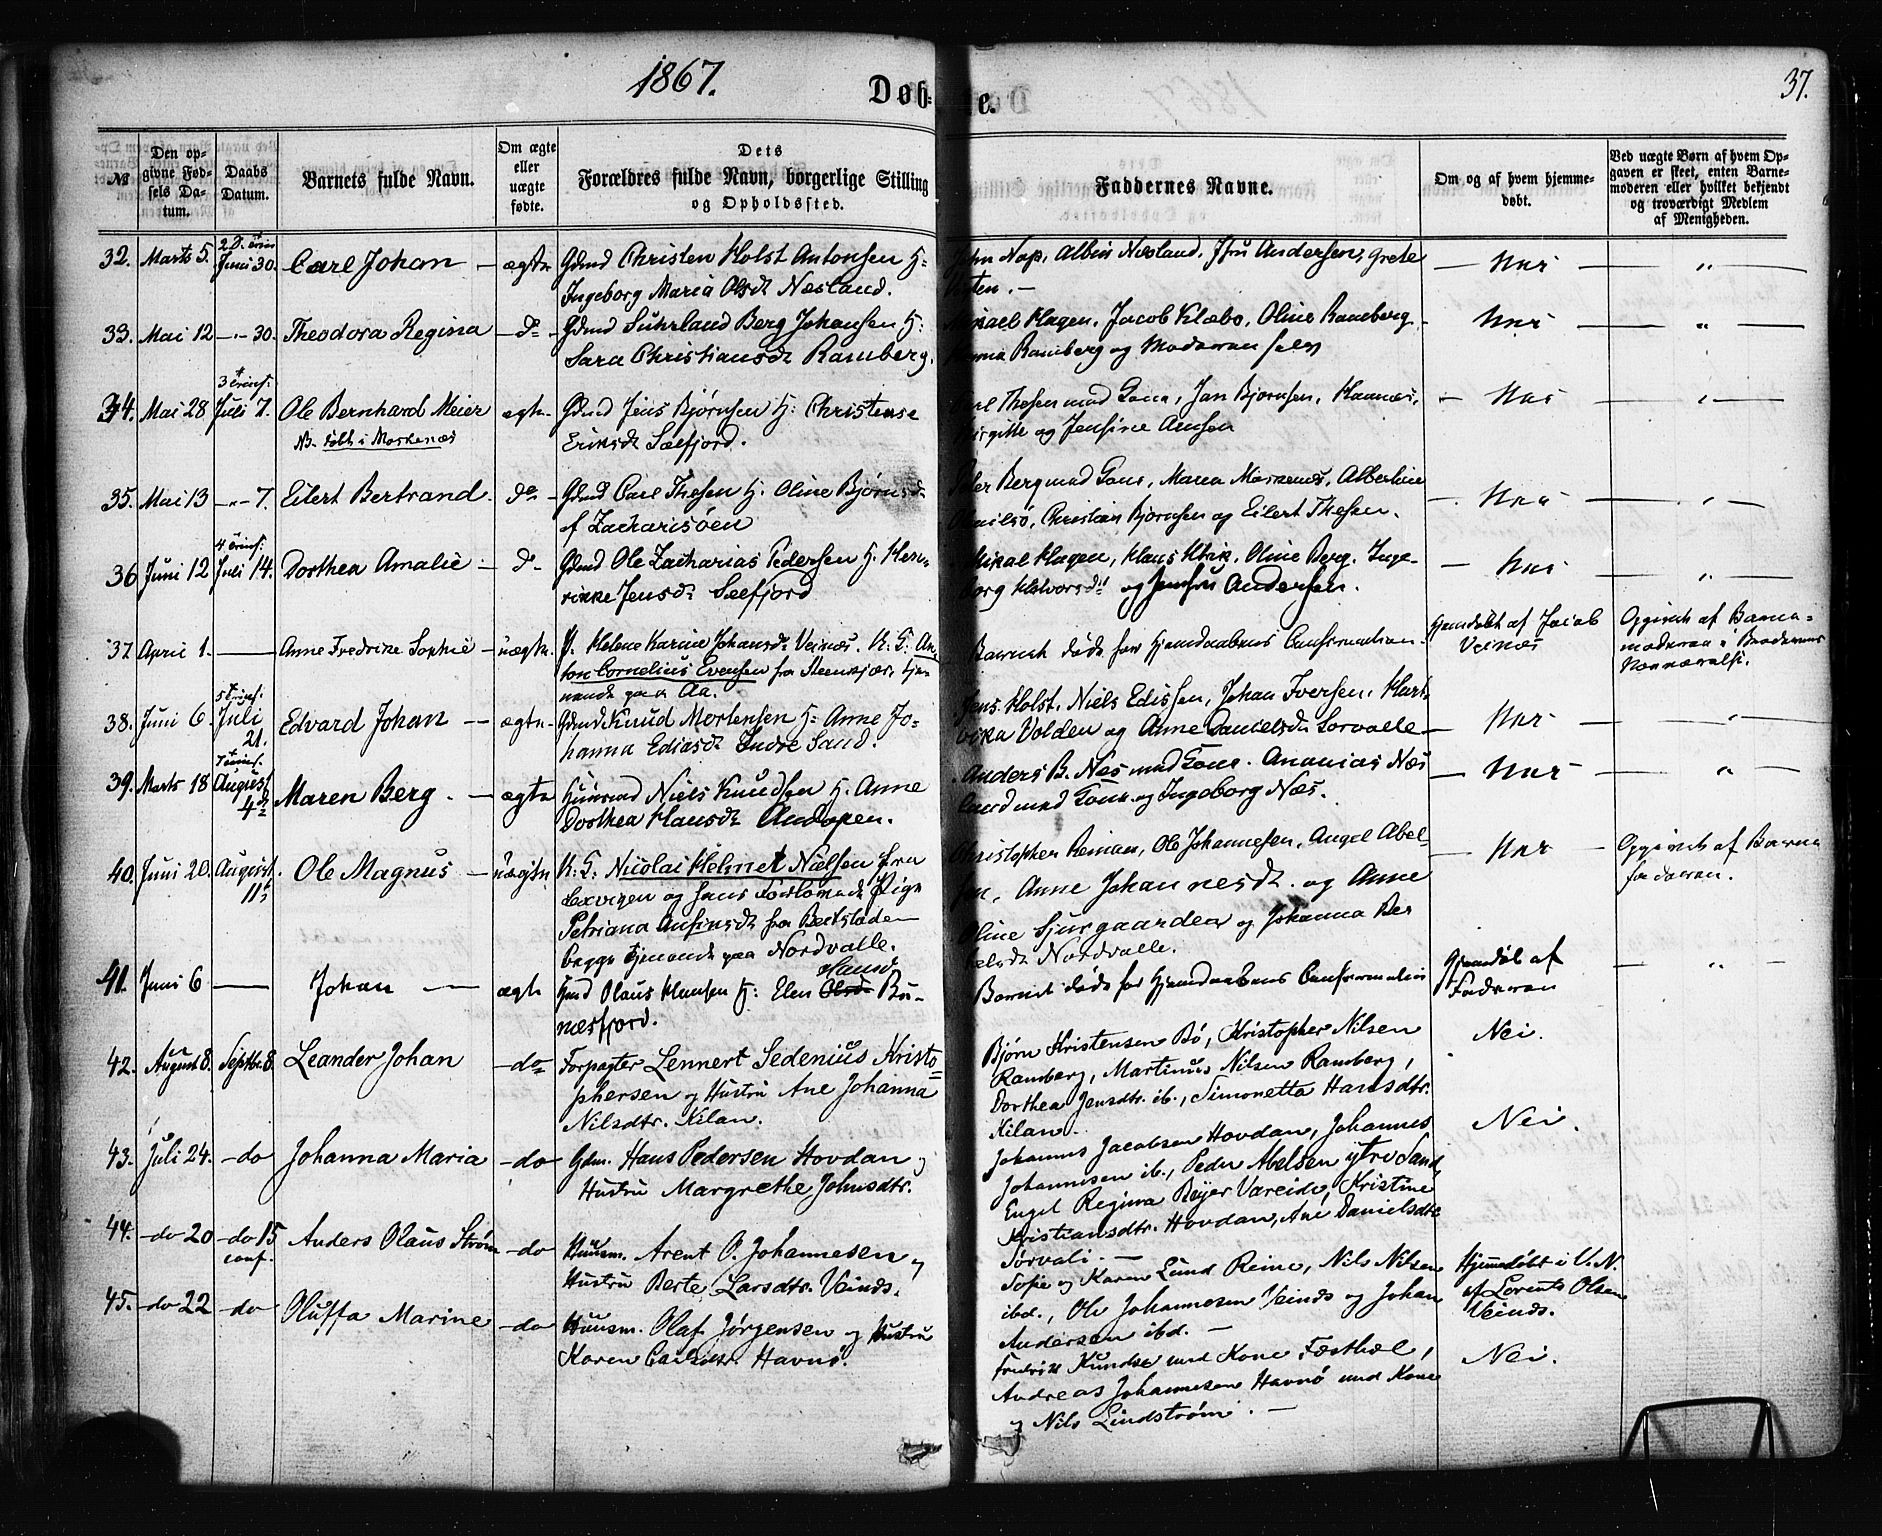 1867.
37.
Døb-
te.
№
Den op-
givne Fød-
sels Da-
tum.
Daabs
Datum.
Barnets fulde Navn.
Om ægte
eller
uægte
fødte.
Dets
Forældres fulde Navn, borgerlige Stilling
og Opholdssted.
Faddernes Navne.
Om og af hvem hjemme-
døbt.
Ved uægte Børn af hvem Op-
gaven er skeet, enten Barne-
moderen eller hvilket bekjendt
og troværdigt Medlem
af Menigheden.
32. Marts 5. Juni 30. Carl Johan — ægte Gdmd Christen Holst Antonsen H:
Ingeborg Maria Olsdt Næsland.
Albin Næsland, Jfru Andersen, Grete
33. Mai 12 —"— 30. Theodora Regina — do — Gdmd Suhrland Berg Johansen H:
Sara Christiansdt Ramberg.
Mikael Hagen, Jacob Klæbo, Oline Ramberg
Ramberg og Moderen selv
34. Mai 28 3 Trinf: Juli 7. Ole Bernhard Meier ægte Gdmd Jens Bjørnsen H: Christense
NB. født i Moskenæs
Eriksdt Selfjord.
Carl Thesen med Kone, Jan Bjornsen, Hannes,
Birgitte og Jensine Aensen
35. Mai 13 —"— 7. Eilert Bertrand. do — Gdmd Carl Thesen H. Oline Bjørnsdt
af Zacharisøen
Peder Berg med Kone, Maren Moskenæs, Albertine
Christian Bjornsen og Eilert Thesen.
36 Juni 12 4 Trinf: Juli 14. Dorthea Amalie — do — Gdmd Ole Zacharias Pedersen H. Hen-
rikke Jensdt Selfjord
Mikal Hagen, Hans Oline Berg, Inge-
borg Halvorsdt og Andersen.
37 April 1. — Anne Fredrike Sophie — uægte. P. Helene Karine Johansdt Veinæs. U: K: An-
ton Cornelius Evensen fra Steenkjær, tje-
nende paa Aa.
Barnet døde før Hjemdaabens Confirmation.
Hjemdøbt af Jacob
Veinæs
Opgivet af Barne-
moderen i Broderens
Nærværelse.
38. Juni 6. 5 Trinf. Juli 21. Edvard Johan — ægte Gdmd Knud Mortensen H: Anne Jo-
hanna Ediasdt Indre Sand.
Jens Holst, Niels Edissen, Johan Iversen, Hart-
vika Volden og Anne Danielsdt Sorvalle
39. Marts 18 August 4de Maren Berg. — ægte Huusmd Niels Knudsen H. Anne
Dorthea Hansdt Andopen.
Anders B. Næs med Kone. Ananias Næs
land med Kone og Ingeborg Næs.
40. Juni 20. August 11te Ole Magnus — uægte U: K: Nicolai Helmet Nielsen fra
Lexvigen og hans Forlovede Pige
Petriana Ansinsdt fra Bertsladen
begge tjenende paa Nordvalle.
Christopher Reinan, Ole Johannesen, Angel Abel-
sen, Anne Johannesdt og Anne
Oline Sjursgaarden og Johanna Ber
telsdt Nordvalle.
Opgivet af Barne
faderen.
41. Juni 6 — Johan — ægte Gmd Olaus Hansen H: Elen Olsdt Hansd Bu-
næsfjord.
Barnet døde før Hjemdaabens Confirmation
Hjemdøbt af
Faderen
42. August 8. Septbr. 8. Leander Johan — do Forpagter Lennert Sedenius Kristo-
phersen og Hustru Ane Johanna
Nilsdtr. Kilan.
Bjørn Kristensen Bø, Kristopher Nilsen
Ramberg, Martinus Nilsen Ramberg,
Dorthea Jensdtr. ib., Simonetta Hansdtr.
Kilan.
Nei.
43. Juli 24. — do Johanna Maria — do Gdm. Hans Pedersen Hovdan og
Hustru Margrethe Johnsdtr.
Johannes Jacobsen Hovdan, Johannes
Johannesen ib., Peder Abelsen ytre Sand,
Engel Regina Beyer Vareide, Kristine
Kristiansdtr. Hovdan, Ane Danielsdtr
Sørvali. —
Nei.
44. — do 20 — do 15 conf. Anders Olaus Strøm — do Huusm. Arent O. Johannesen og
Hustru Berte Larsdtr. Veinds.
Sofie og Karen Lund Reine, Nils Nilsen
ibd., Ole Johannesen Veinds og Johan
Andersen ibd. —
Hjemmedøbt i V. N.
af Lorents Olsen
Veinds.
45. — do 22 — do Oluffa Marine — do Huusm. Olaf Jørgensen og Hustru
Karen Havnø.
Fredrik Kundsen med Kone Fæsthæl,
Andreas Johannesen Havnø med Kone
og Nils Lindstrøm. —
Nei.